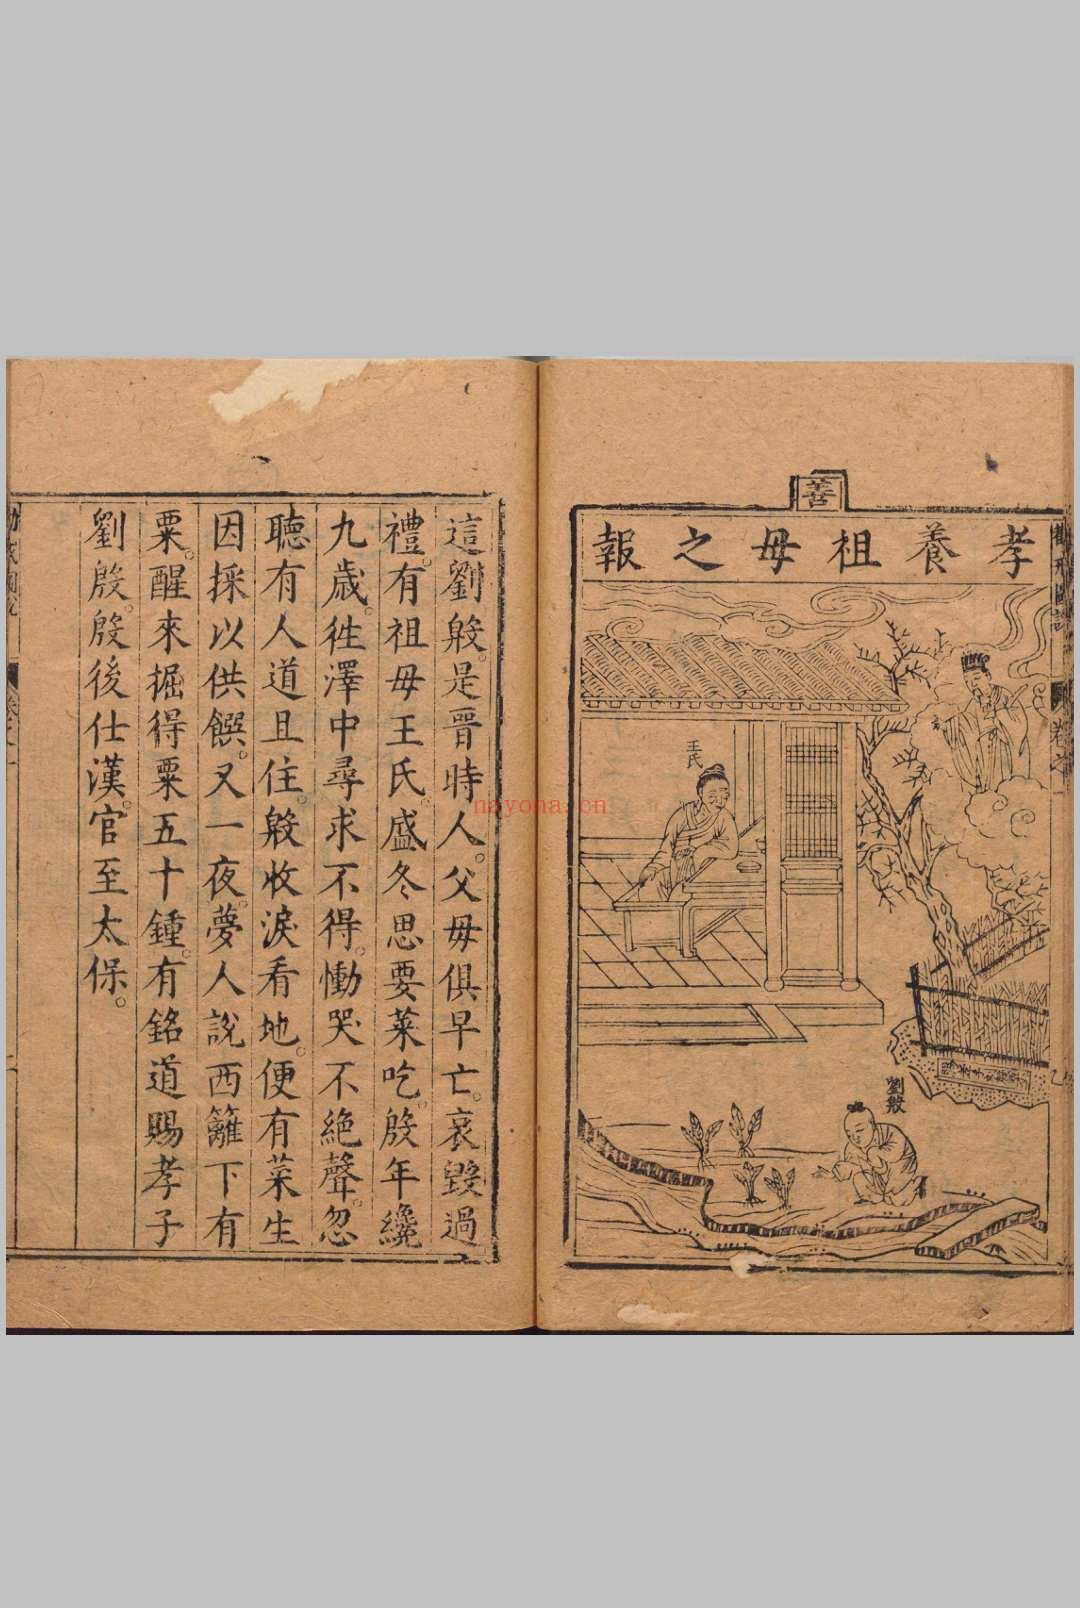 善
孝養祖母之報
王氏
劉殷
這劉殷。是晉時人。父母俱早亡。哀毀過
禮。有祖母王氏。盛冬思要菜吃。殷年纔
九歳。徃澤中尋求不得。慟哭不絶聲。忽
聽有人道且住。殷收淚看地。便有菜生
因採以供饌。又一夜。夢人說西籬下有
粟。醒來掘得粟五十鍾。有銘道賜孝子
劉殷。殷後仕漢。官至太保。
nayona.cn